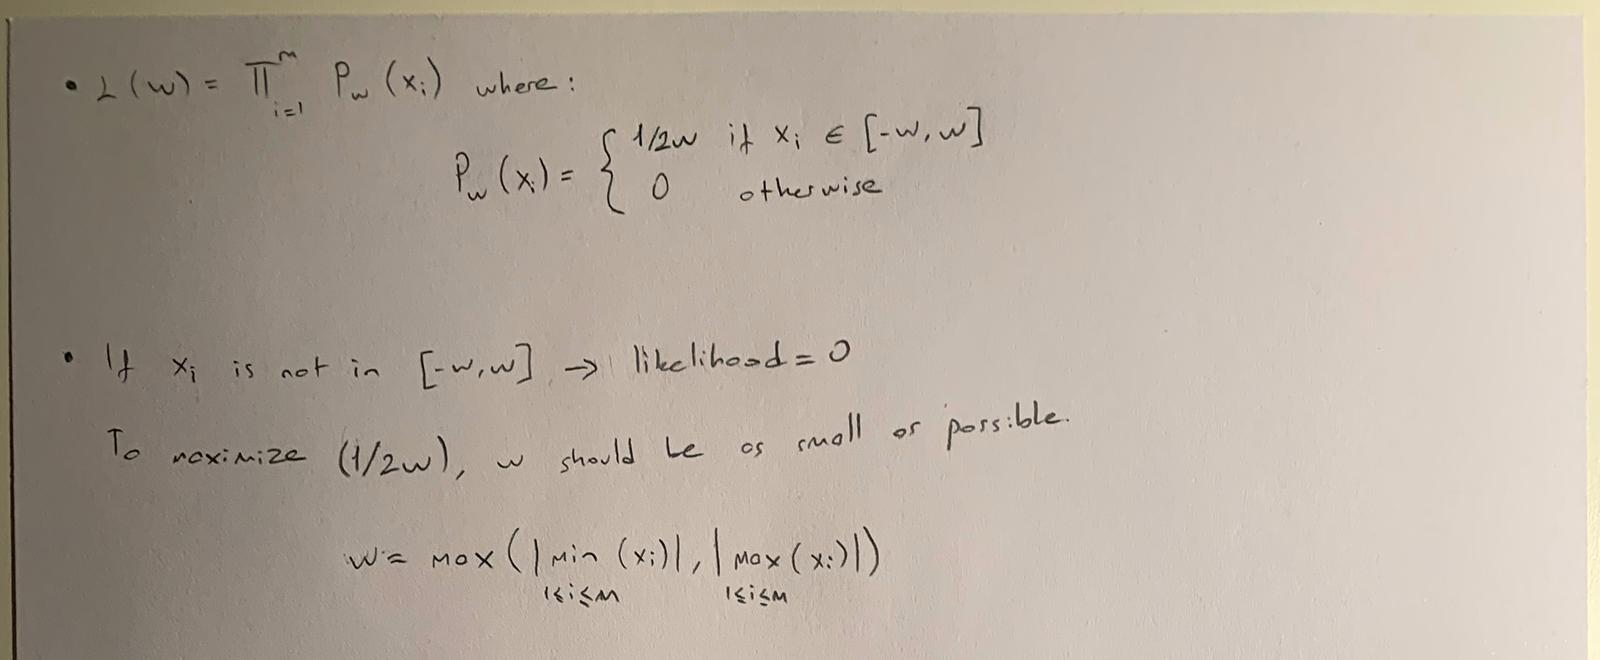 • L(w) = ∏_{i=1}^{m} P_w(x_i) where:
P_w(x_i) = { 1/2w if x_i ∈ [-w, w]
0 otherwise
• If x_i is not in [-w, w] → likelihood = 0
To maximize (1/2w), w should be as small as possible.
w = max(|min(x_i)|, |max(x_i)|)
1≤i≤m 1≤i≤m